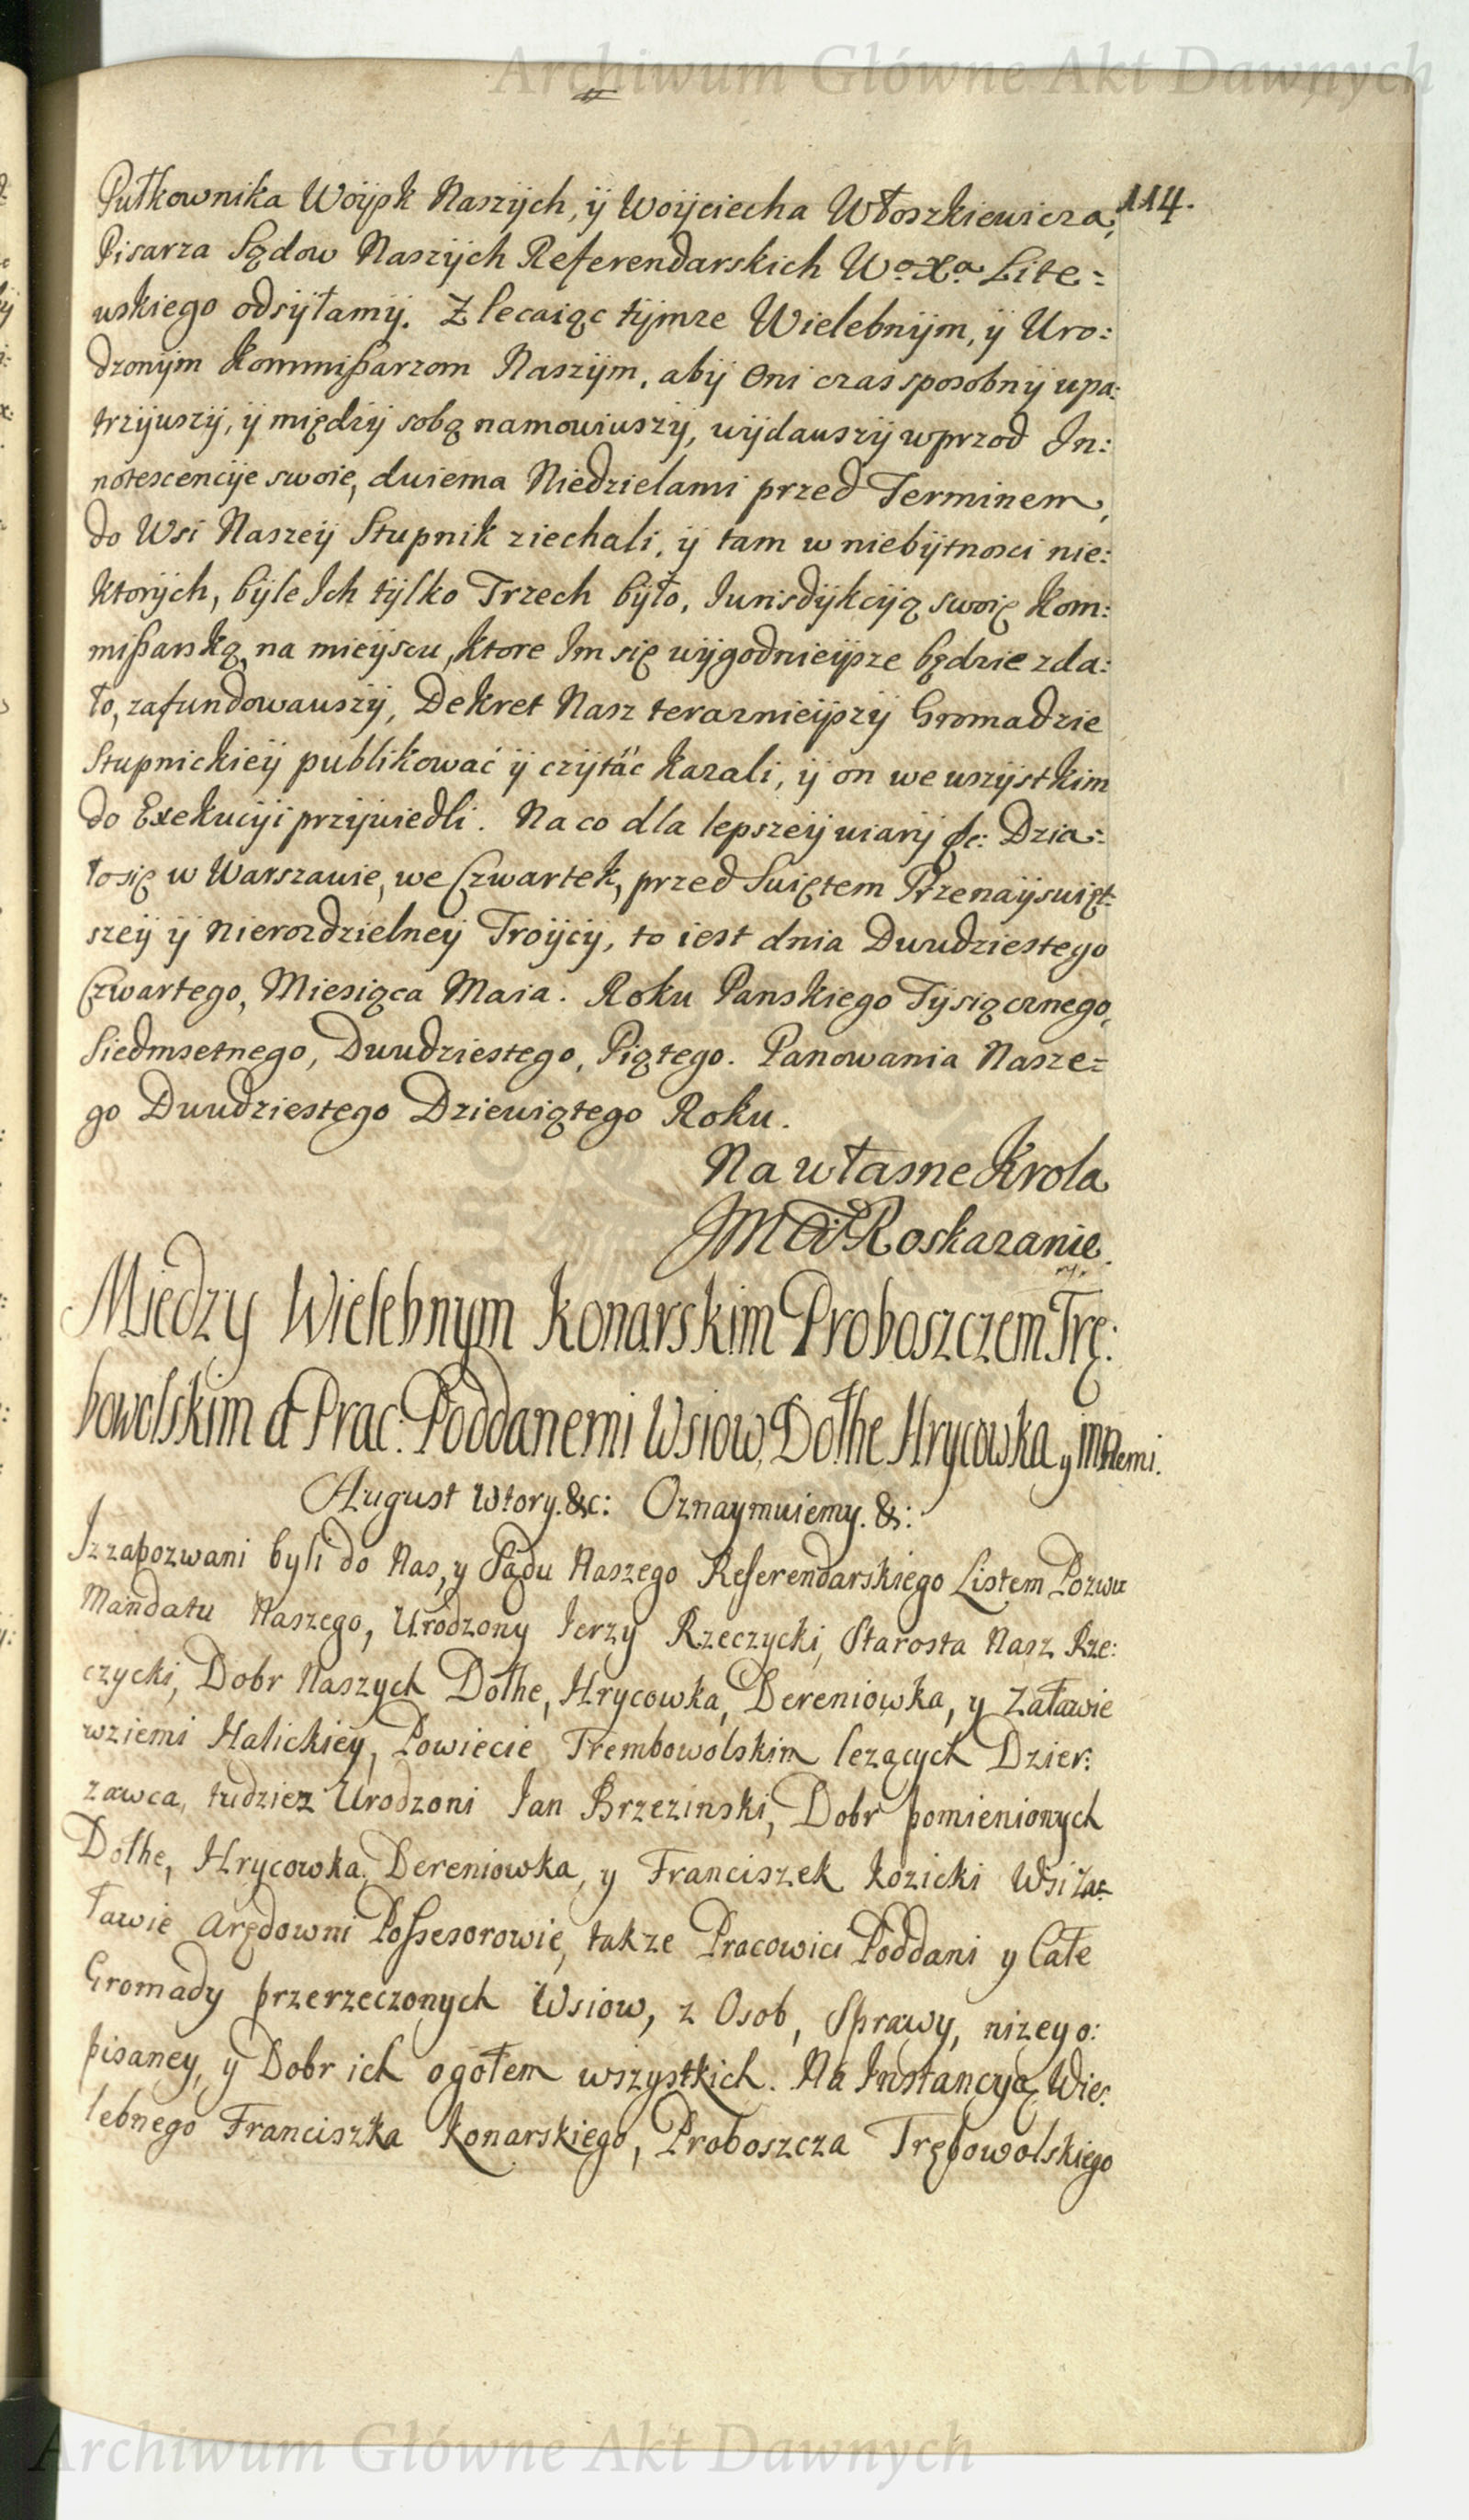 Archiwum Główne Akt Dawnych
114.
Pułkownika Woÿsk Naszÿch, ÿ Woÿciecha Włoszkiewicza,
Pisarza Sądow Naszÿch Referendarskich Wo. Xa. Lite=
wskiego odsÿłamÿ. Zlecaiąc tÿmze Wielebnÿm, ÿ Uro:
dzonÿm Kommißarzom Naszÿm, abÿ Oni czas sposobnÿ upa:
trzÿwszÿ, ÿ międzÿ sobą namowiwszÿ, wÿdawszÿ wprzod In:
notescencÿe swoie, dwiema Niedzielami przed Terminem,
do Wsi Naszeÿ Stupnik ziechali, ÿ tam w niebÿtnosci nie:
ktorÿch, bÿle Ich tÿlko Trzech bÿło, Iurisdÿkcÿą swoię Kom:
mißarską, na mieÿscu, ktore Im się wÿgodnieÿsze będzie zda:
ło, zafundowawszÿ, Dekret Nasz teraznieÿszÿ Gromadzie
Stupnickieÿ publikować ÿ czÿtać kazali, ÿ on we wszÿstkim
do Exekucÿi przÿwiedli. Na co dla lepszeÿ wiarÿ &c: Dzia=
łosię w Warszawie, we Czwartek, przed Swiętem Przenaÿswięt:
szeÿ ÿ Nierozdzielneÿ Troÿcÿ, to iest dnia Dwudziestego
Czwartego, Miesiąca Maia. Roku Panskiego Tÿsiącznego,
Siedmsetnego, Dwudziestego, Piątego. Panowania Nasze=
go Dwudziestego Dziewiątego Roku.
Na własne Krola
JMCi Roskazanie.
Miedzy Wielebnym Konarskim Proboszczem Trę:
bowolskim a Prac: Poddanemi Wsiow, Dołhe Hrycowka y innemi.
August Wtory. &c: Oznaymuiemy. &:
Iz zapozwani byli do Nas, y Sądu Naszego Referendarskiego Listem Pozwu
Mandatu Naszego, Urodzony Ierzy Rzeczycki, Starosta Nasz Rze:
czycki, Dobr Naszych Dołhe, Hrycowka, Dereniowka, y Załawie
wziemi Halickiey, Powiecie Trembowolskim lezących Dzier:
zawca, tudziez Urodzoni Ian Brzezinski, Dobr pomienionych
Dołhe, Hrycowka, Dereniowka, y Franciszek Kozicki Wsi Za=
ławie Arędowni Poßesorowie, takze Pracowici Poddani y Całe
Gromady przerzeczonych Wsiow, z Osob, Sprawy, nizey o:
pisaney, y Dobr ich ogołem wszystkich. Na Instancyą Wie:
lebnego Franciszka Konarskiego, Proboszcza Trębowolskiego
Archiwum Główne Akt Dawnych